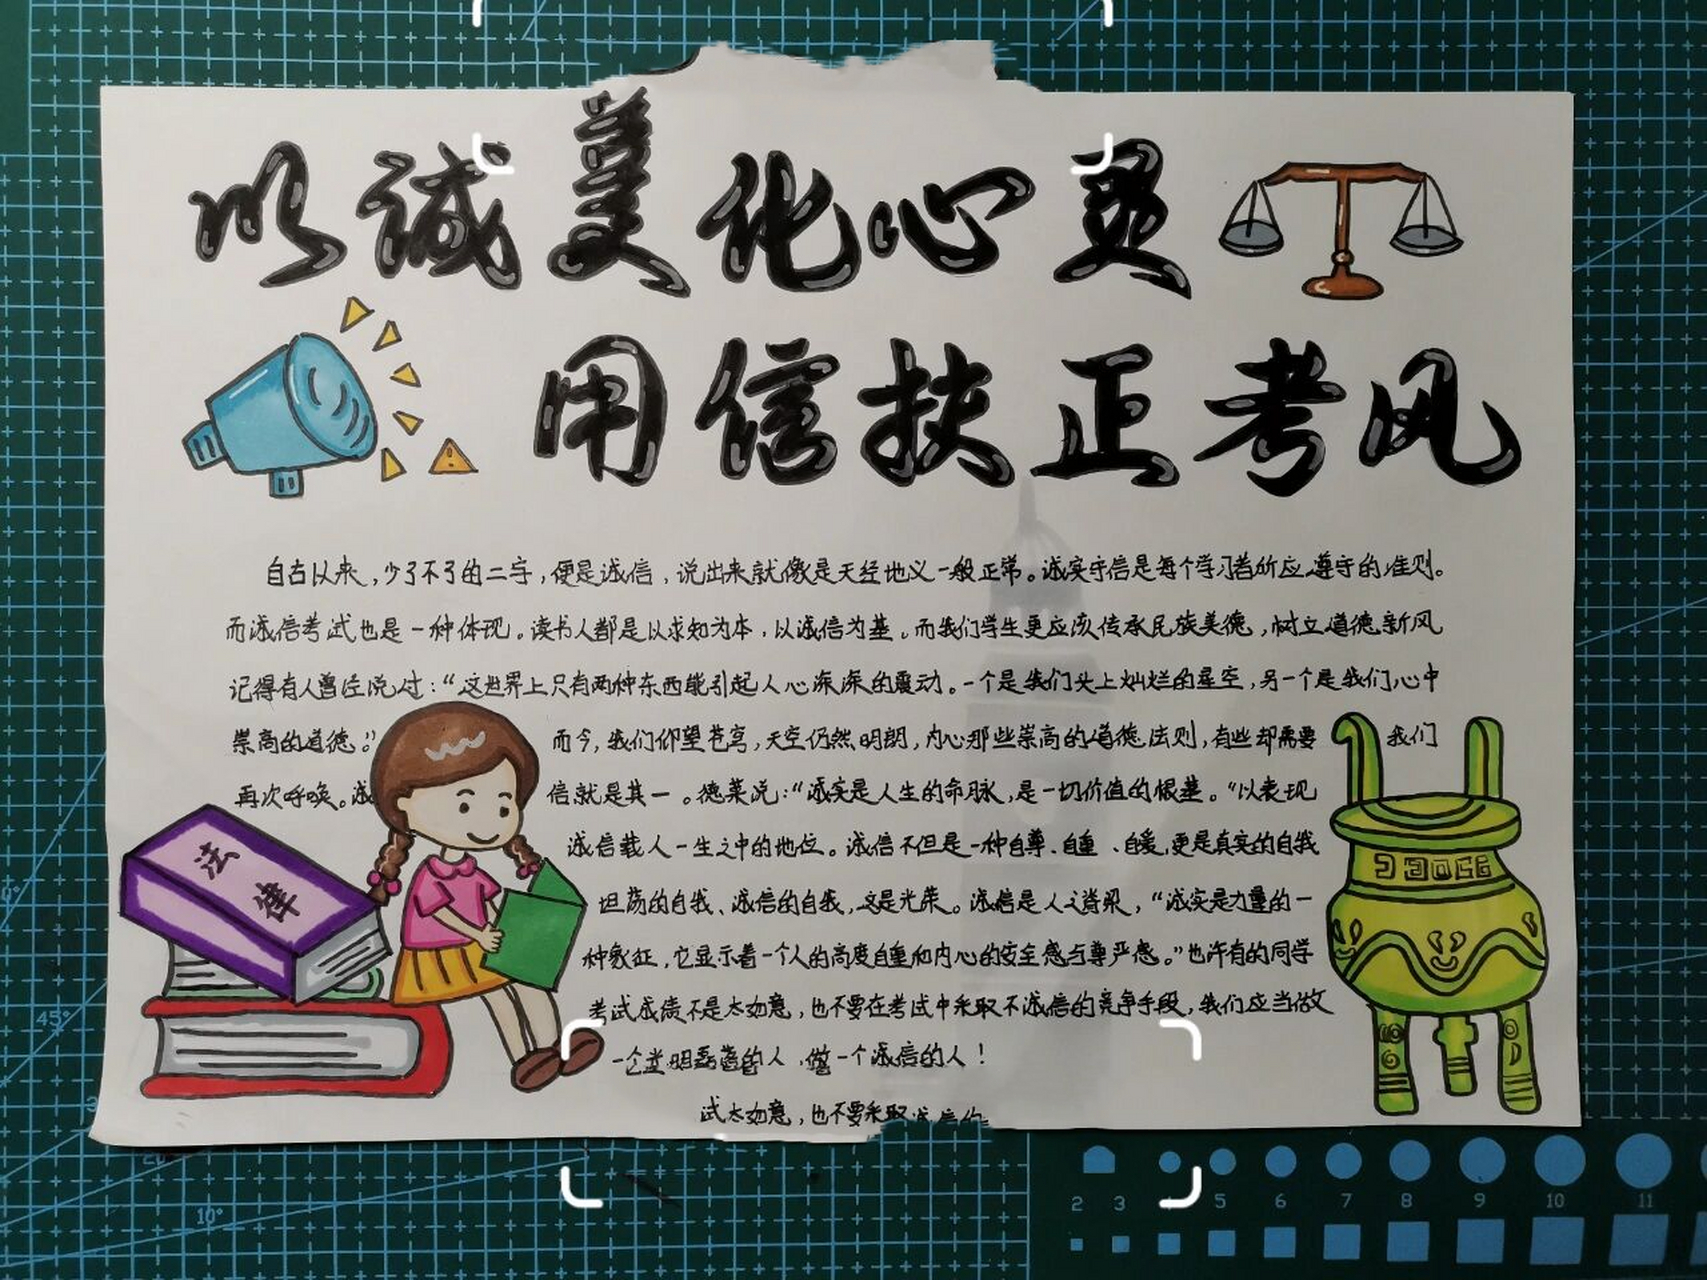 以诚美化心灵
用信扶正考风
自古以来，少了不了的二字，便是诚信，说出来就像是天经地义一般正常。诚实守信是每个学习者所应遵守的准则。
而诚信考试也是一种体现。读书人都是以求知为本，以诚信为基。而我们学生更应该传承民族美德，树立道德新风
记得有人曾经说过：“这世界上只有两种东西能引起人心深深的震动。一个是我们头上灿烂的星空，另一个是我们心中
崇高的道德。” 而今，我们仰望苍穹，天空仍然明朗，内心那些崇高的道德法则，有些却需要 我们
再次呼唤。诚 信就是其一。德莱说：“诚实是人生的命脉，是一切价值的根基。“以表现
诚信载人一生之中的地位。诚信不但是一种自尊、自重、自爱，更是真实的自我
坦荡的自我、诚信的自我，这是光荣。诚信是人之脊梁，“诚实是力量的一
种象征，它显示着一个人的高度自重和内心的安全感与尊严感。”也许有的同学
考试成绩不是太如意，也不要在考试中采取不诚信的竞争手段，我们应当做
一个 明磊 的人，做一个诚信的人！
试太如意，也不要采取诚信的
法律
2 3 5 6 7 8 9 10 11
45°
10°